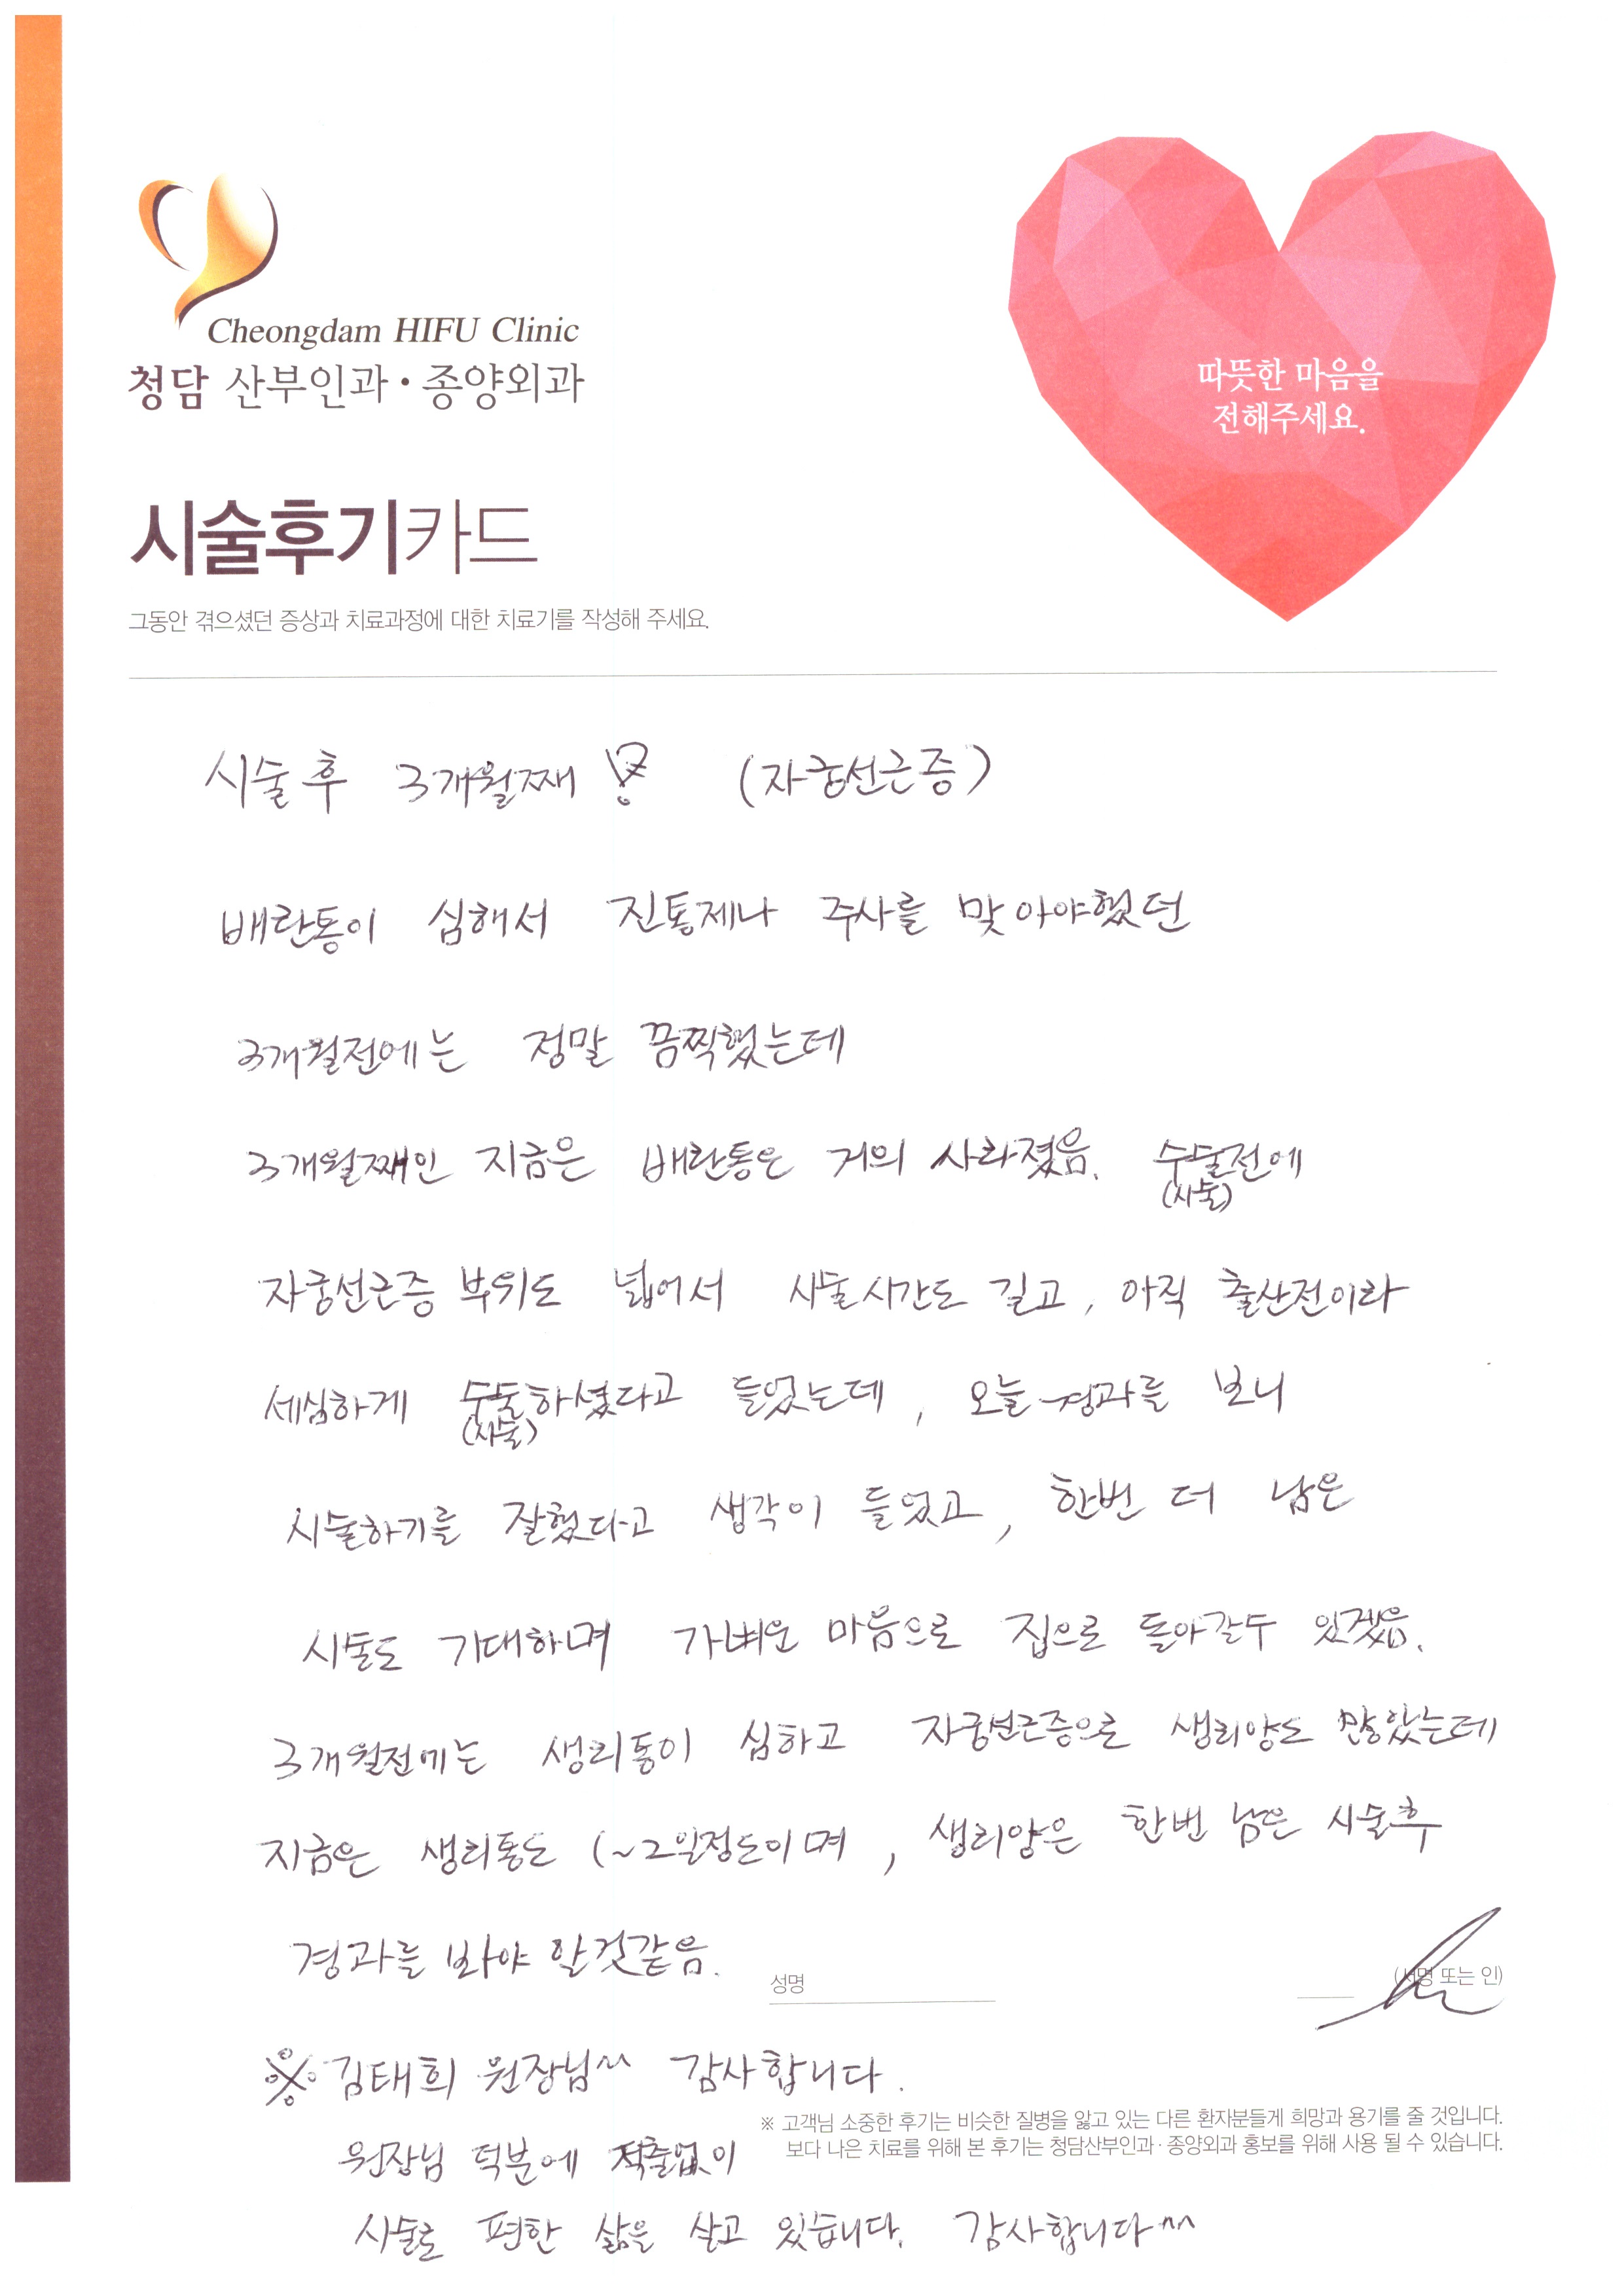 Cheongdam HIFU Clinic
청담 산부인과·종양외과
따뜻한 마음을
전해주세요.
시술후기카드
그동안 겪으셨던 증상과 치료과정에 대한 치료기를 작성해 주세요.
시술후 3개월째 (자궁선근증)
배란통이 심해서 진통제나 주사를 맞아야했던
3개월전에는 정말 끔찍했는데
3개월째인 지금은 배란통은 거의 사라졌음. 수술전에
(시술)
자궁선근증 부위도 넓어서 시술시간도 길고, 아직 출산전이라
세심하게 수술하셨다고 들었는데, 오늘 경과를 보니
(시술)
시술하기를 잘했다고 생각이 들었고, 한번 더 남은
시술도 기대하며 가벼운 마음으로 집으로 돌아갈수 있겠음.
3개월전에는 생리통이 심하고 자궁선근증으로 생리양도 많았는데
지금은 생리통도 1~2일정도이며, 생리양은 한번 남은 시술후
경과를 봐야 할것같음.
성명 (서명 또는 인)
※ 김태희 원장님^^ 감사합니다.
원장님 덕분에 적출없이
시술로 편한 삶을 살고 있습니다. 감사합니다^^
※ 고객님 소중한 후기는 비슷한 질병을 앓고 있는 다른 환자분들게 희망과 용기를 줄 것입니다.
보다 나은 치료를 위해 본 후기는 청담산부인과·종양외과 홍보를 위해 사용 될 수 있습니다.